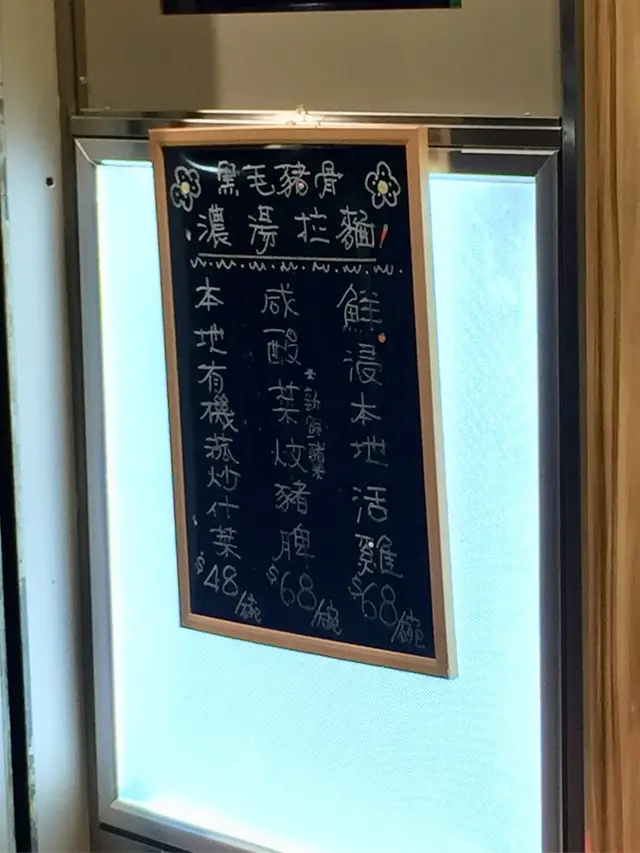 黑毛豬骨
濃湯拉麵
鮮浸本地活雞
$68/碗
咸酸菜炆豬脾
*新鮮豬槳
$68/碗
本地有機菰炒什菜
$48/碗